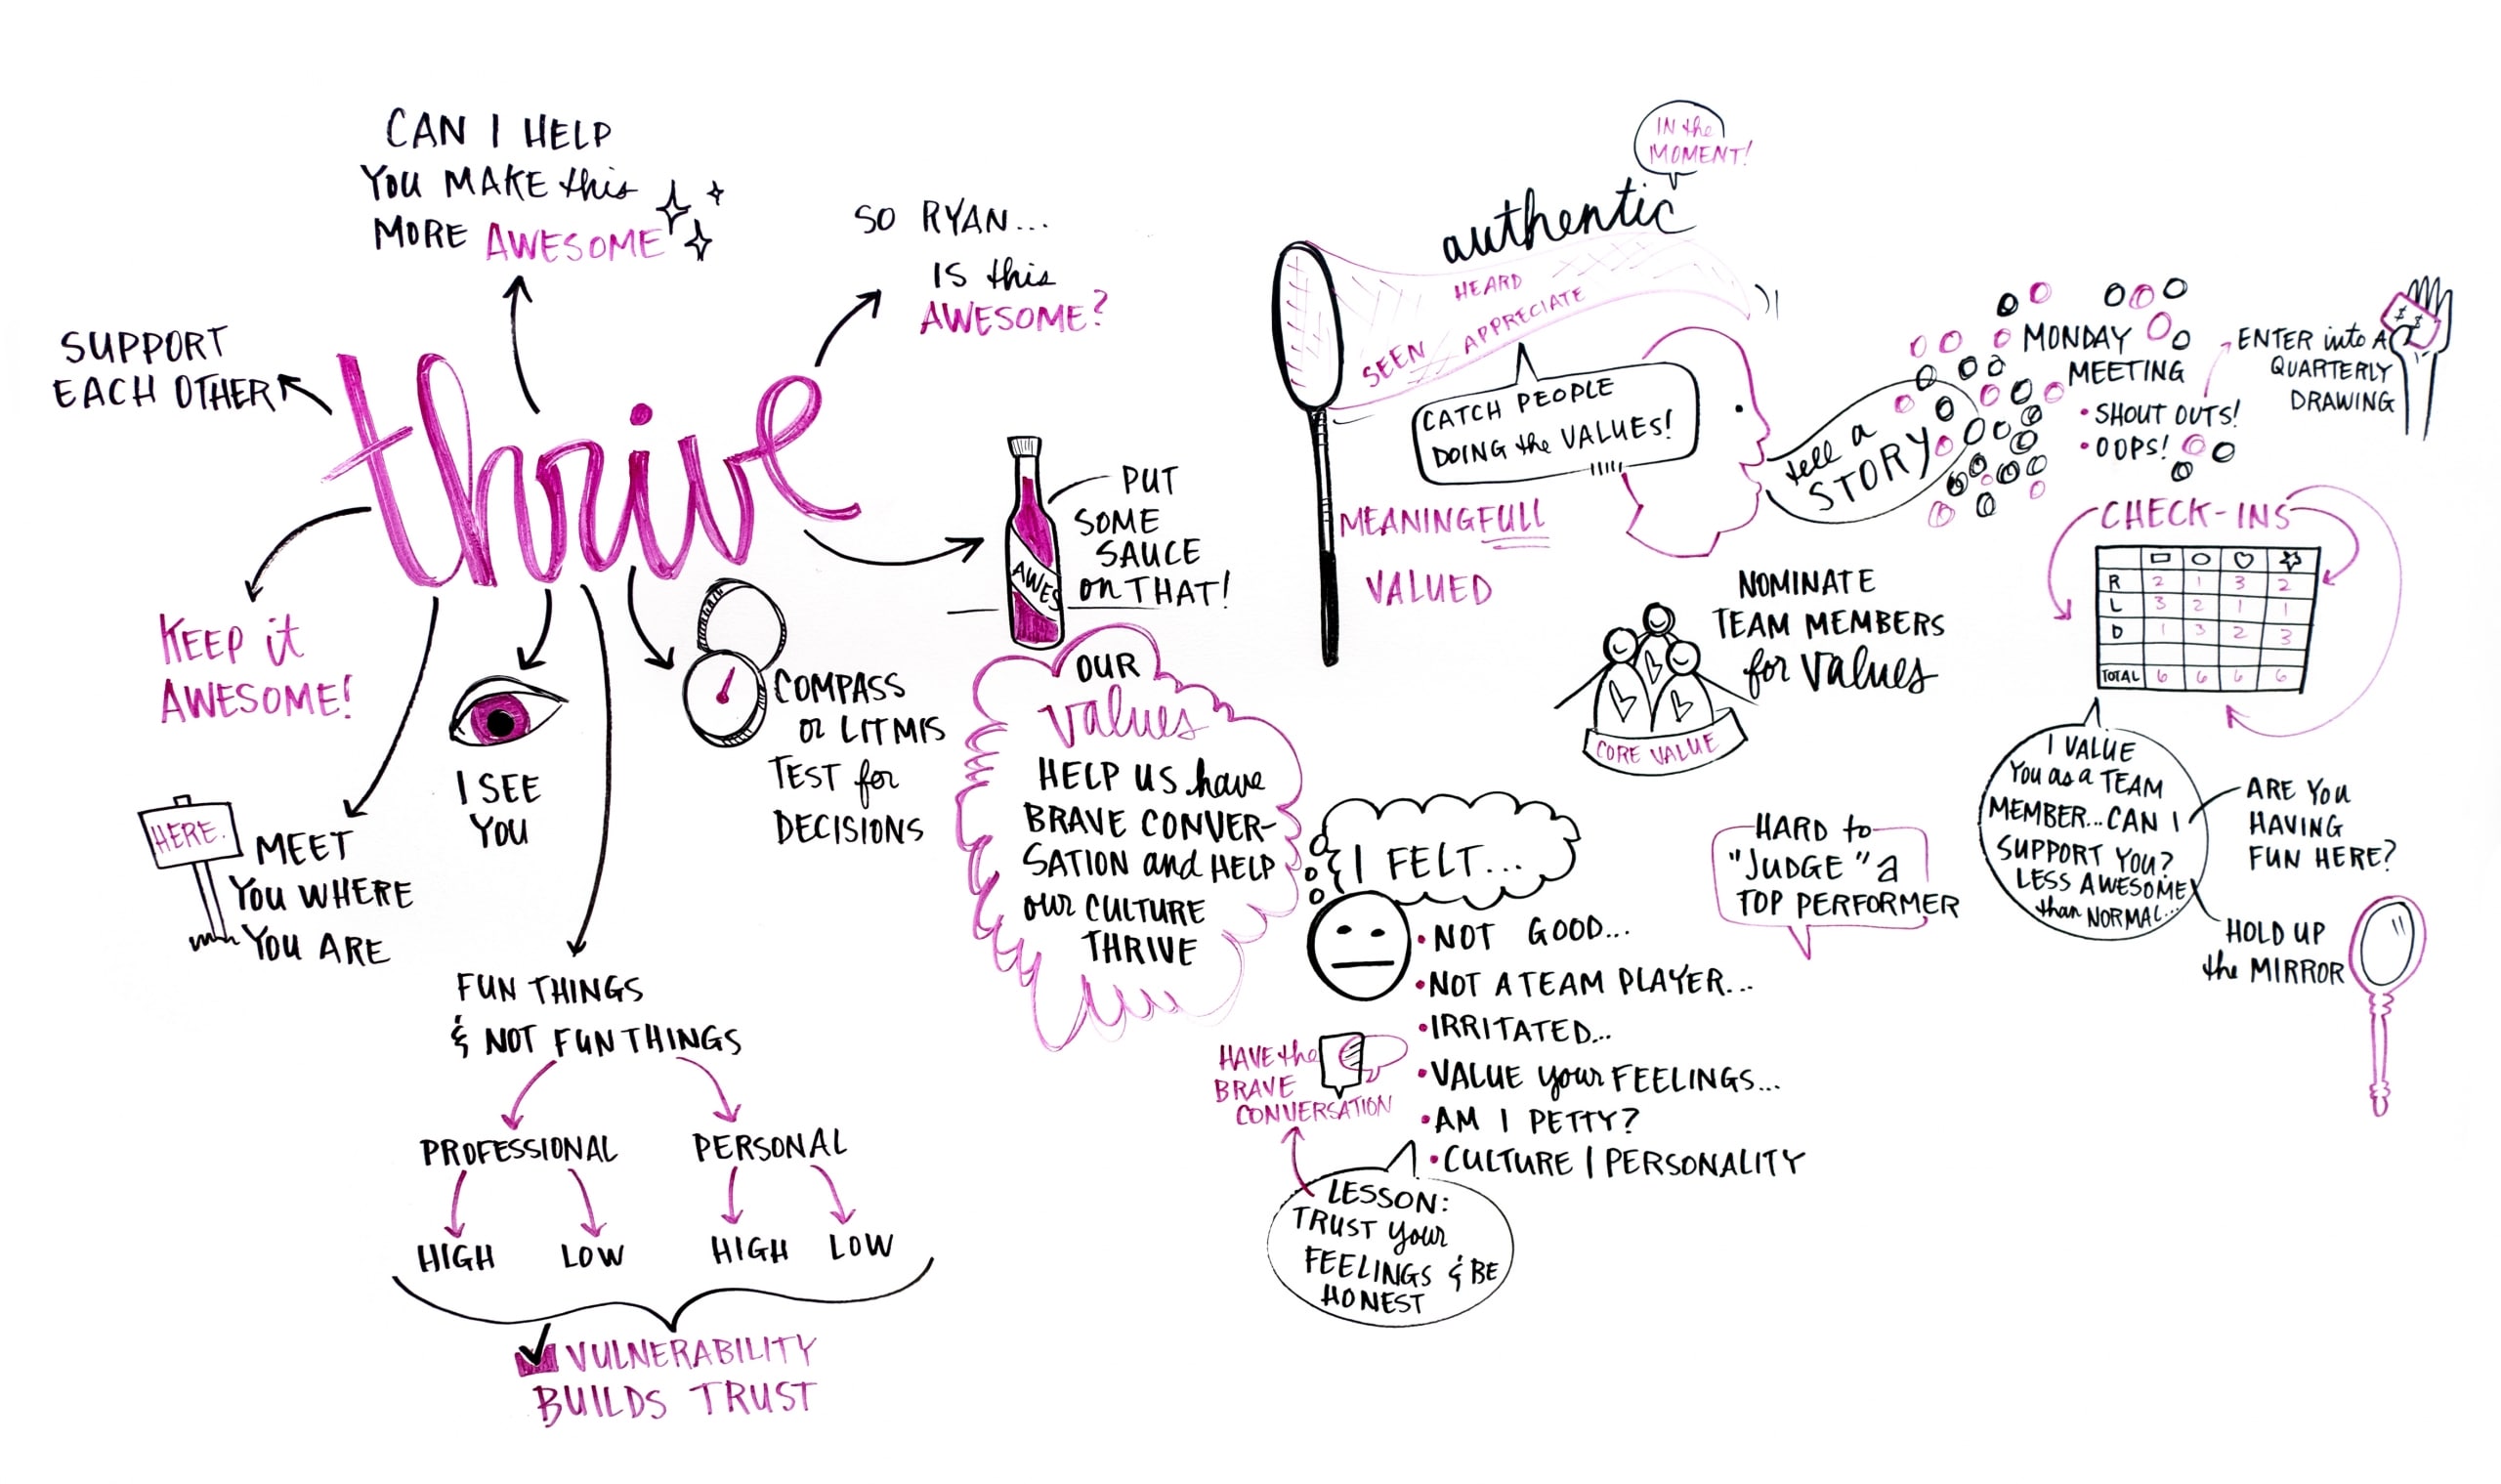 CAN I HELP
YOU MAKE this
MORE AWESOME
SO RYAN...
IS this
AWESOME?
SUPPORT
EACH OTHER
thrive
KEEP it
AWESOME!
HERE.
MEET
YOU WHERE
YOU ARE
I SEE
YOU
COMPASS
or LITMIS
TEST for
DECISIONS
PUT
SOME
SAUCE
on THAT!
AWES
FUN THINGS
& NOT FUN THINGS
PROFESSIONAL
PERSONAL
HIGH
LOW
HIGH
LOW
VULNERABILITY
BUILDS TRUST
OUR
values
HELP US have
BRAVE CONVER-
SATION and HELP
our CULTURE
THRIVE
IN the
MOMENT!
authentic
HEARD
SEEN APPRECIATE
CATCH PEOPLE
DOING the VALUES!
MEANINGFULL
VALUED
tell a
STORY
MONDAY
MEETING
• SHOUT OUTS!
• OOPS!
ENTER into A
QUARTERLY
DRAWING
$ $
CHECK-INS
R 2 1 3 2
L 3 2 1 1
D 1 3 2 3
TOTAL 6 6 6 6
NOMINATE
TEAM MEMBERS
for values
CORE VALUE
I VALUE
You as a TEAM
MEMBER...CAN I
SUPPORT YOU?
LESS AWESOME
than NORMAL...
ARE YOU
HAVING
FUN HERE?
HOLD UP
the MIRROR
HARD to
"JUDGE" a
TOP PERFORMER
I FELT...
• NOT GOOD...
• NOT A TEAM PLAYER...
• IRRITATED...
• VALUE your FEELINGS...
• AM I PETTY?
• CULTURE | PERSONALITY
HAVE the
BRAVE
CONVERSATION
LESSON:
TRUST your
FEELINGS & BE
HONEST